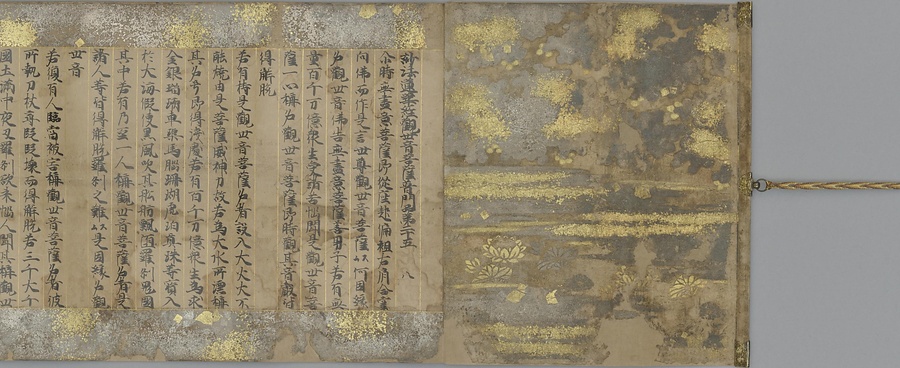 妙法蓮華経觀世音菩薩普門品第二十五　八
尒時無盡意菩薩即從座起偏袒右肩合掌
向佛而作是言世尊觀世音菩薩以何因緣
名觀世音佛告無盡意菩薩善男子若有無
量百千万億衆生受諸苦惱聞是觀世音菩
薩一心稱名觀世音菩薩即時觀其音聲皆
得解脱
若有持是觀世音菩薩名者設入大火火不
能燒由是菩薩威神力故若為大水所漂稱
其名号即得淺處若有百千万億衆生為求
金銀瑠璃車𤦲馬瑙珊瑚虎珀真珠等寳入
於大海假使黒風吹其舩舫飄堕羅刹鬼國
其中若有乃至一人稱觀世音菩薩名者是
諸人等皆得解脱羅刹之難以是因緣名觀
世音
若復有人臨當被害稱觀世音菩薩名者彼
所執刀杖尋段段壞而得解脱若三千大千
國土滿中夜叉羅刹欲来惱人聞其稱觀世